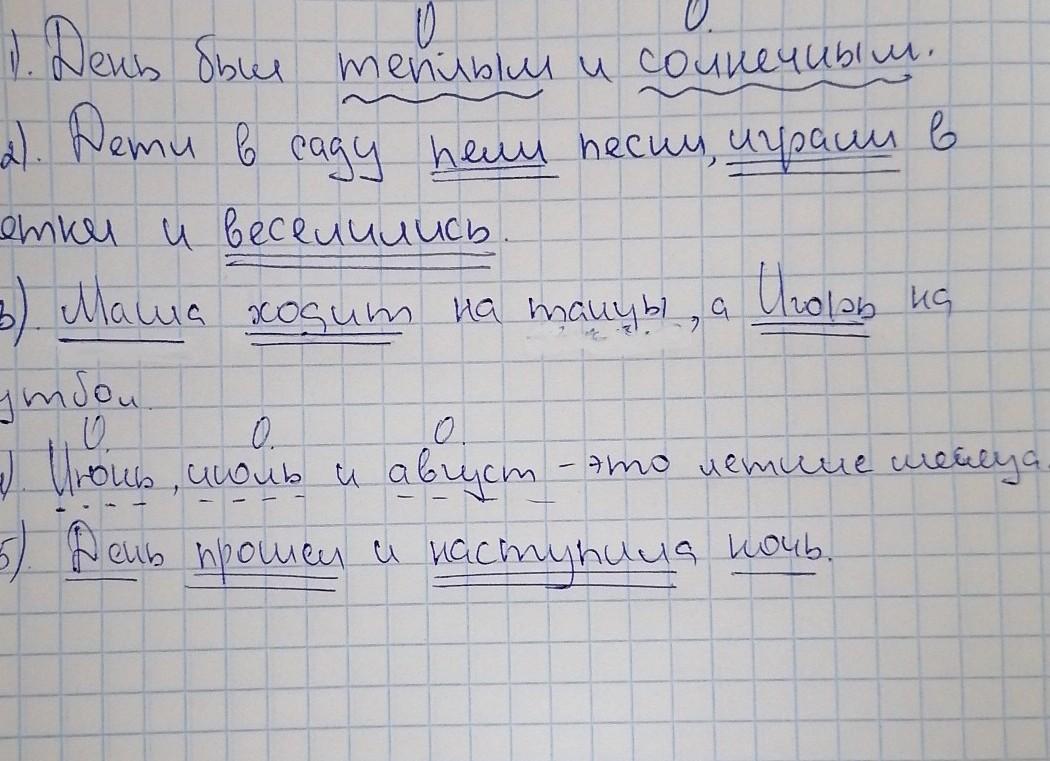 1). День был тёплым и солнечным.
2). Дети в саду пели песни, играли в
ятки и веселились.
3). Маша ходит на танцы, а Игорь на
утбол.
4). Июнь, июль и август - это летние месяца.
5). День прошел и наступила ночь.